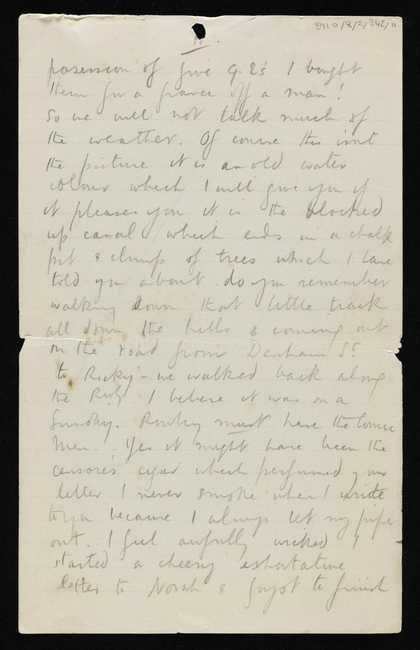 8110/2/2/242/11
II.
possession of five G.E's I bought
them for a franc off a man!
So we will not talk much of
the weather. Of course this isnt
the picture it is an old water
colour which I will give you if
it pleases you it is the blocked
up canal which ends in a chalk
pit & clump of trees which I have
told you about. do you remember
walking down that little track
all down the hills & coming out
on the road from Denham St.
to Ricky - we walked back along
the I believe it was on a
Sunday. must have the
men. Yes it might have been the
censores cigar which perfumed your
letter I never smoke when I write
to you because I always let my pipe
out. I feel awfully wicked I
started a cheery
letter to Norah & forgot to finish